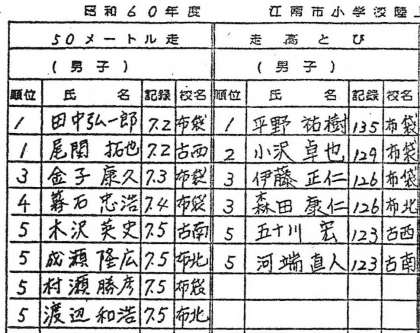 昭和60年度 江南市小学校陸上
50メートル走 走高とび
(男子) (男子)
順位 氏名 記録 校名 順位 氏名 記録 校名
1 田中弘一郎 7.2 布袋 1 平野祐樹 135 布袋
1 尾関拓也 7.2 古西 2 小沢卓也 129 布袋
3 金子康久 7.3 布袋 3 伊藤正仁 126 布袋
4 忠浩 7.4 布袋 3 森田康仁 126 布北
5 木沢英史 7.5 古南 5 五十川宏 123 古西
5 成瀬隆広 7.5 布北 5 河端直人 123 古南
5 村瀬勝彦 7.5 布袋
5 渡辺和浩 7.5 布北